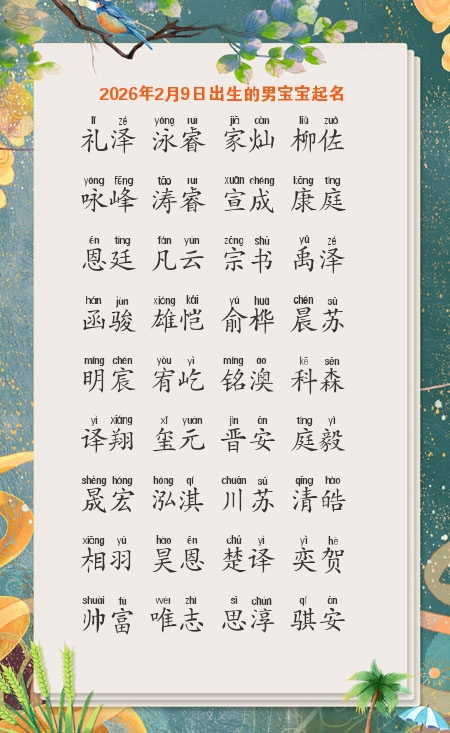 2026年2月9日出生的男宝宝起名
lǐ zé yǒng ruì jiā càn liǔ zuǒ
礼泽 泳睿 家灿 柳佐
yǒng fēng tāo ruì xuān chéng kāng tíng
咏峰 涛睿 宣成 康庭
ēn tíng fán yún zōng shū yǔ zé
恩廷 凡云 宗书 禹泽
hán jùn xióng kǎi yú huà chén sū
函骏 雄恺 俞桦 晨苏
míng chén yòu yì míng ào kē sēn
明宸 宥屹 铭澳 科森
yì xiáng xǐ yuán jìn ān tíng yì
译翔 玺元 晋安 庭毅
shèng hóng hóng qí chuān sū qīng hào
晟宏 泓淇 川苏 清皓
xiāng yǔ hào ēn chǔ yì yì hè
相羽 昊恩 楚译 奕贺
shuài fù wéi zhì sī chún qí ān
帅富 唯志 思淳 骐安